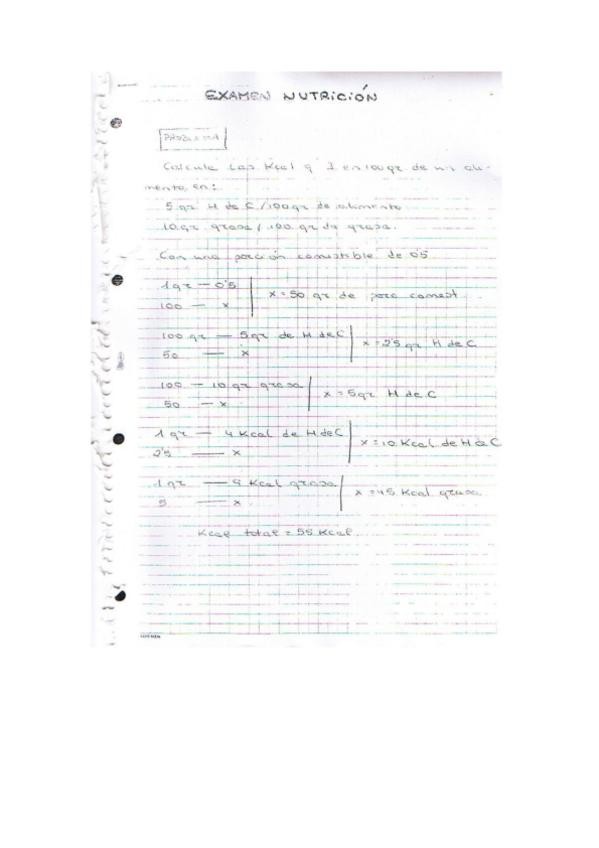 EXAMEN NUTRICIÓN
PROBLEMA
Calcula Las Kcal q en 100 gr de un ali-
mento, en:
5 gr H de C / 100 gr de alimento
10 gr grasa / 100 gr de grasa.
Con una porción comestible de 0'5
1 gr — 0'5
x = 50 gr de porc comest
100 — x
100 gr — 5 gr de H de C
x = 2'5 gr H de C
50 — x
100 — 10 gr grasa
x = 5 gr H de C
50 — x
1 gr — 4 Kcal de H de C
x = 10 Kcal de H de C
2'5 — x
1 gr — 9 Kcal grasa
x = 45 Kcal grasa
5 — x
Kcal total = 55 Kcal.